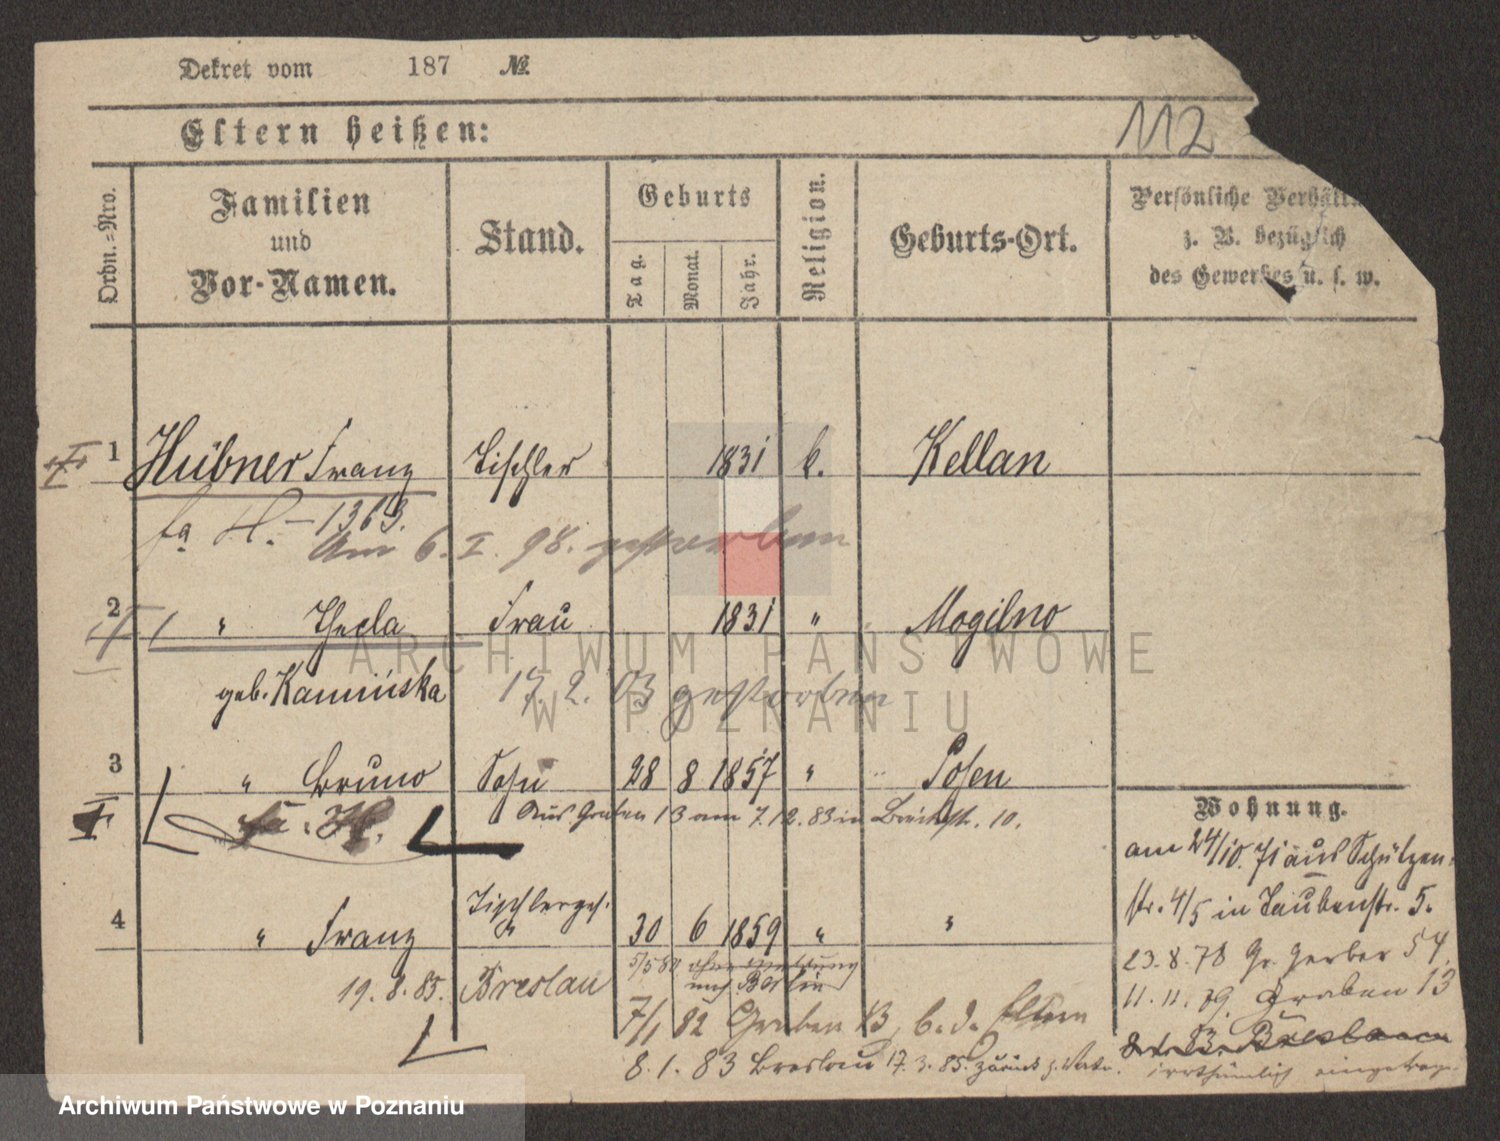 Dekret vom 187 №
112
Eltern heißen:
Ordn.=Nro.
Familien
und
Vor-Namen.
Stand.
Geburts
Tag.
Monat.
Jahr.
Religion.
Geburts-Ort.
Persönliche
z. B. bezüglich
des Gewerbes u. s. w.
1 Hübner Franz Tischler 1831 k. Kellan
fa H. – 1363.
Am 6. I. 98. gestorben
2 " Thecla Frau 1831 " Mogilno
geb. Kamińska 17. 2. 03 gestorben
3 " Bruno Sohn 28 8 1857 " " Posen
fa. H. Aus Graben 13 am 7.12.83 in Bäckstr. 10.
4 " Franz Tischlerges. 30 6 1859 " "
19. 8. 85. Breslau 5/5 80 ohne Meldung
nach Berlin
7/1 82 Graben 13, b. d. Eltern
8. 1. 83 Breslau 17. 3. 85. zurück
Wohnung.
am 24/10. 71 aus Schützen-
str. 4/5 in Taubenstr. 5.
23. 8. 78 Gr. Gerber 54
11. 11. 79. Graben 13
8. 1. 83. Breslau
irrthümlich eingetragen
ARCHIWUM PAŃSTWOWE
W POZNANIU
Archiwum Państwowe w Poznaniu